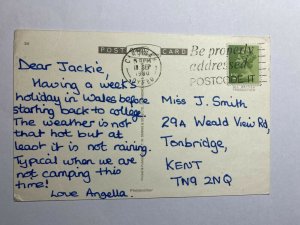 POST CARD
5 PM
18 SEP
1980
Be properly
addressed
POSTCODE IT
Dear Jackie,
Having a week's
holiday in Wales before
starting back to college.
The weather is not
that hot but at
least it is not raining.
Typical when we are
not camping this
time!
Love Angella.
Miss J. Smith
29A Weald View Rd,
Tonbridge,
KENT
TN9 2NQ